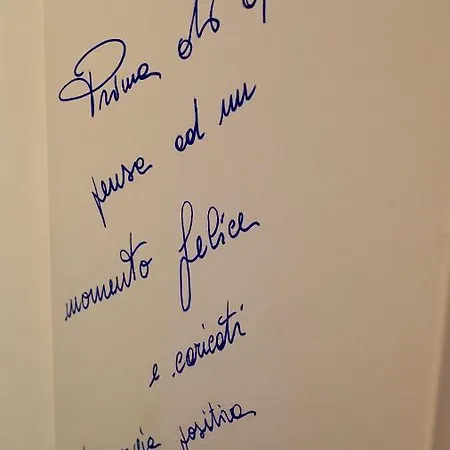 Prima di
pensa ad un
momento felice
e caricati
positiva